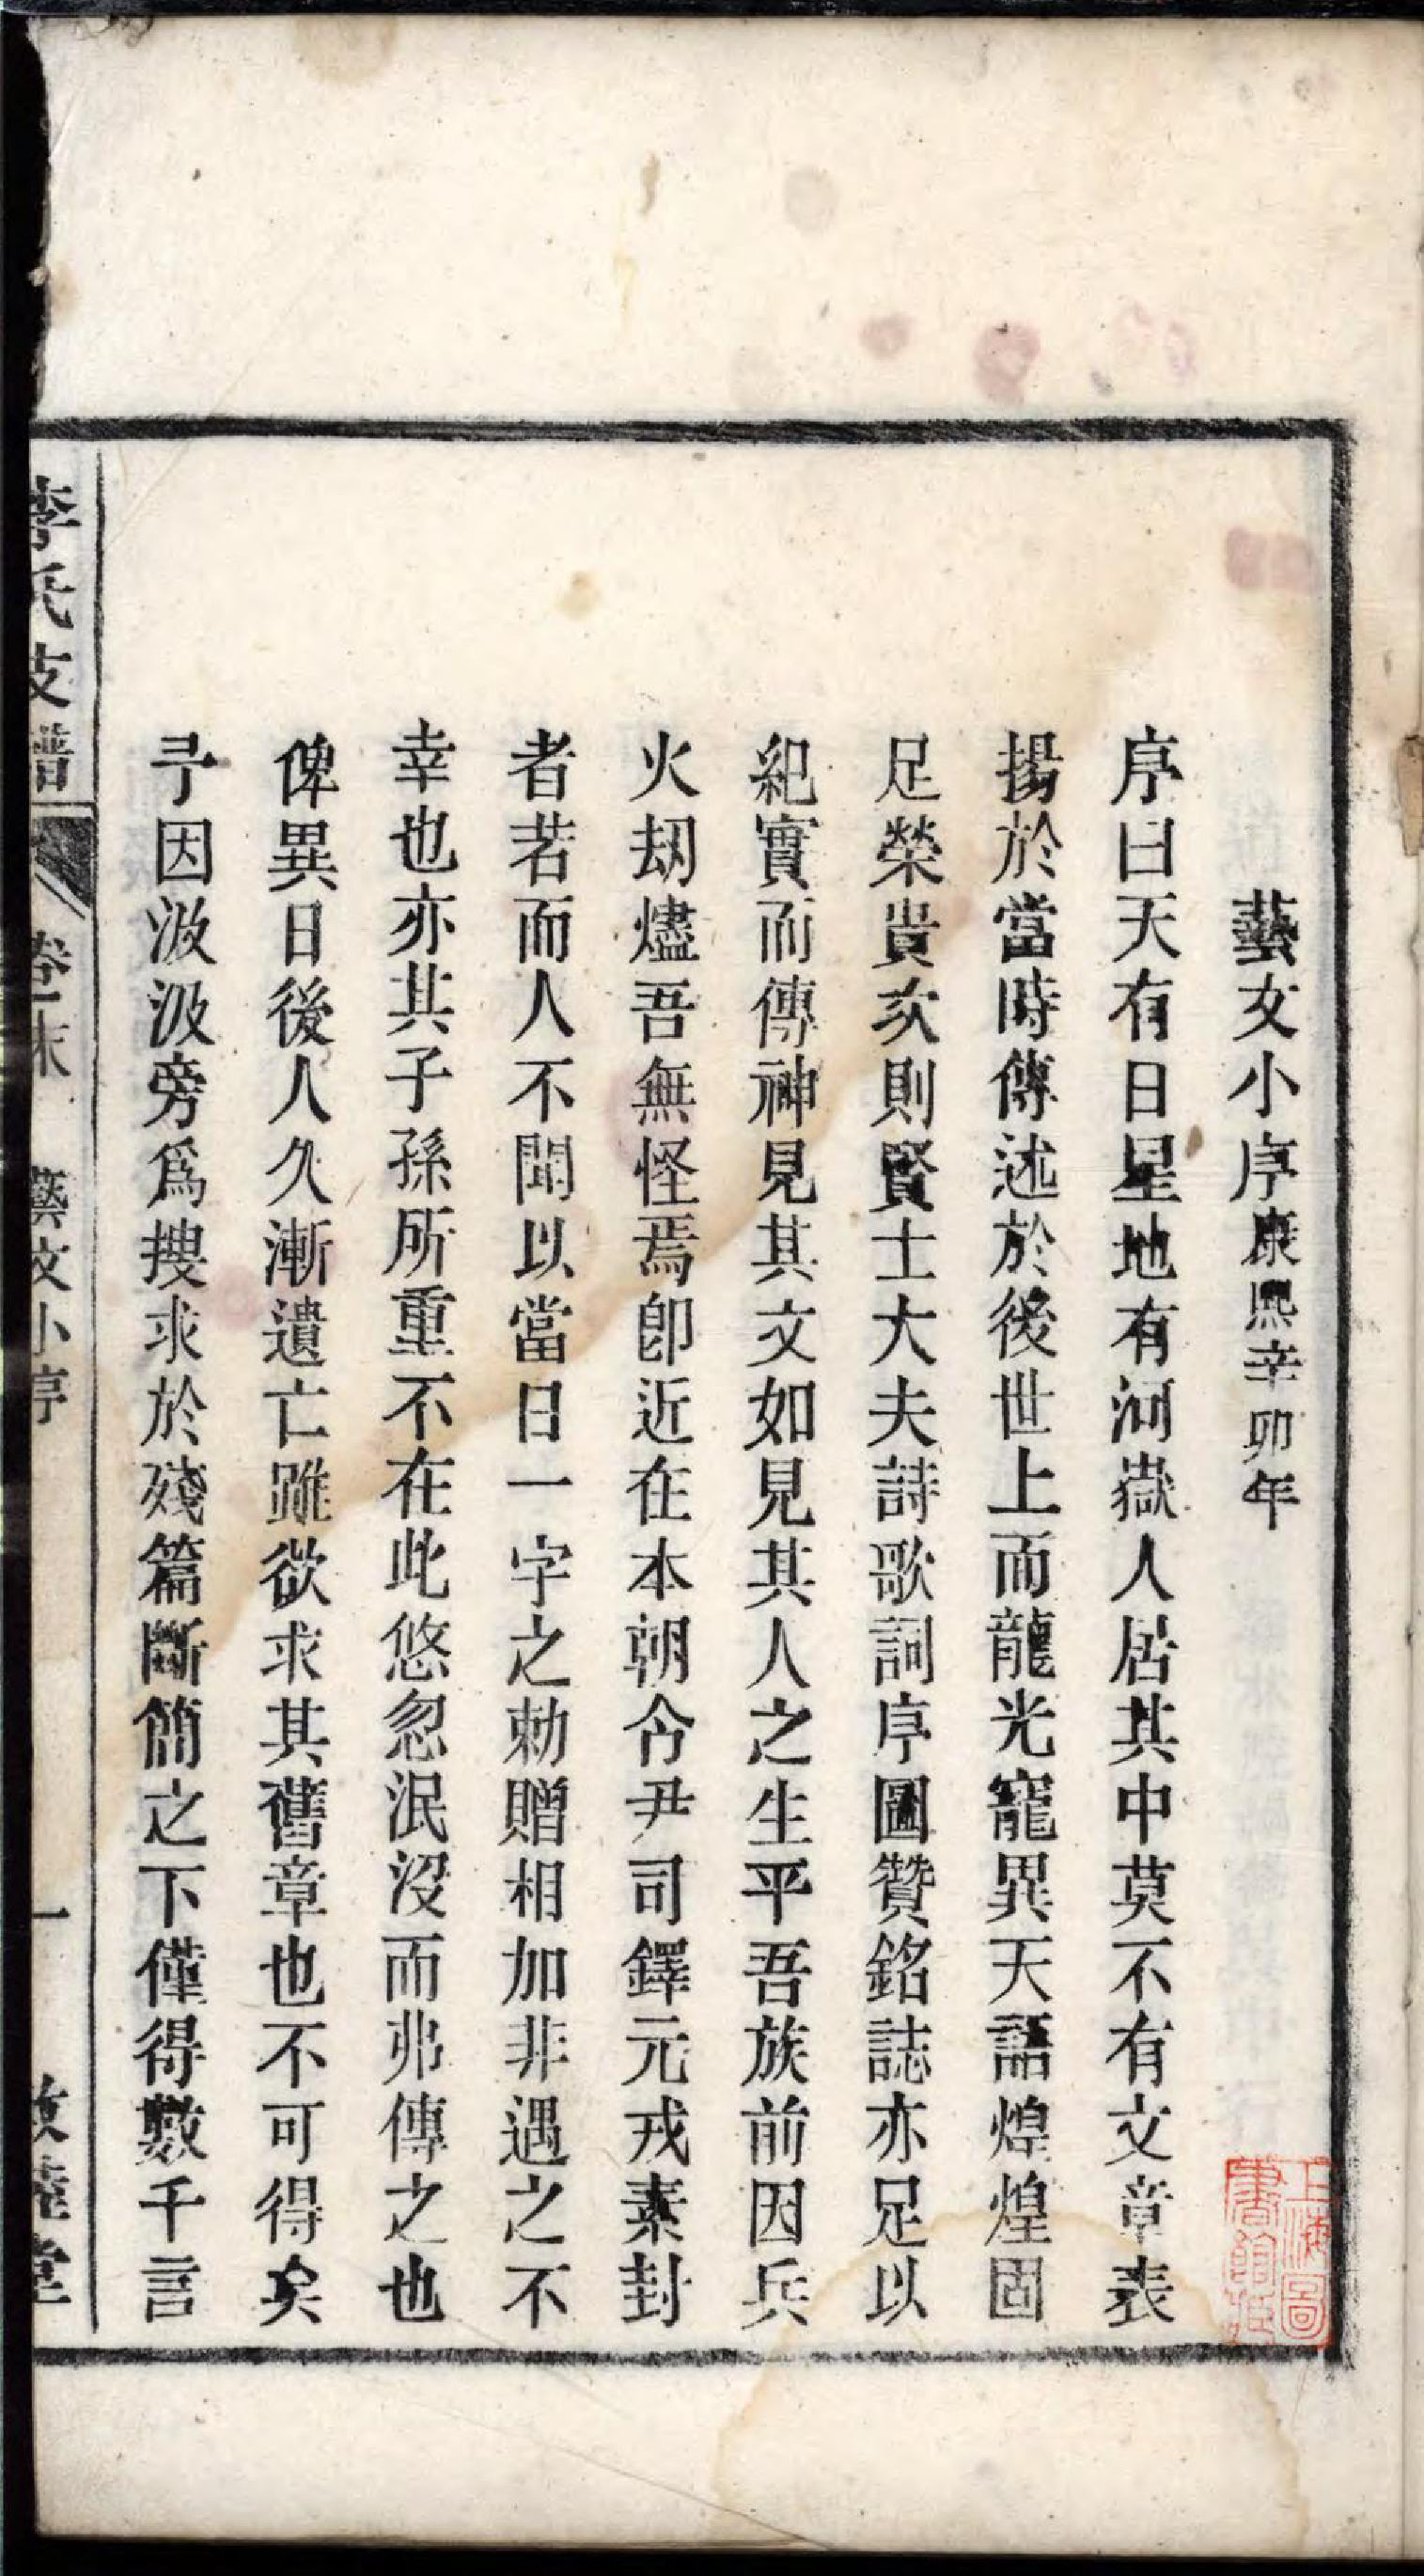 藝文小序康熙辛卯年
序曰天有日星地有河嶽人居其中莫不有文章表
揚於當時傳述於後世上而龍光寵異天語煌煌固
足榮貴次則賢士大夫詩歌詞序圖贊銘誌亦足以
紀實而傳神見其文如見其人之生平吾族前因兵
火刼燼吾無怪焉卽近在本朝令尹司鐸元戎素封
者若而人不聞以當日一字之勅贈相加非遇之不
幸也亦其子孫所重不在此悠忽泯沒而弗傳之也
俾異日後人久漸遺亡雖欲求其舊章也不可得矣
予因汲汲旁爲搜求於殘篇斷簡之下僅得數千言
李氏支譜
卷末
藝文小序
一
敦睦堂
上海圖
書館藏